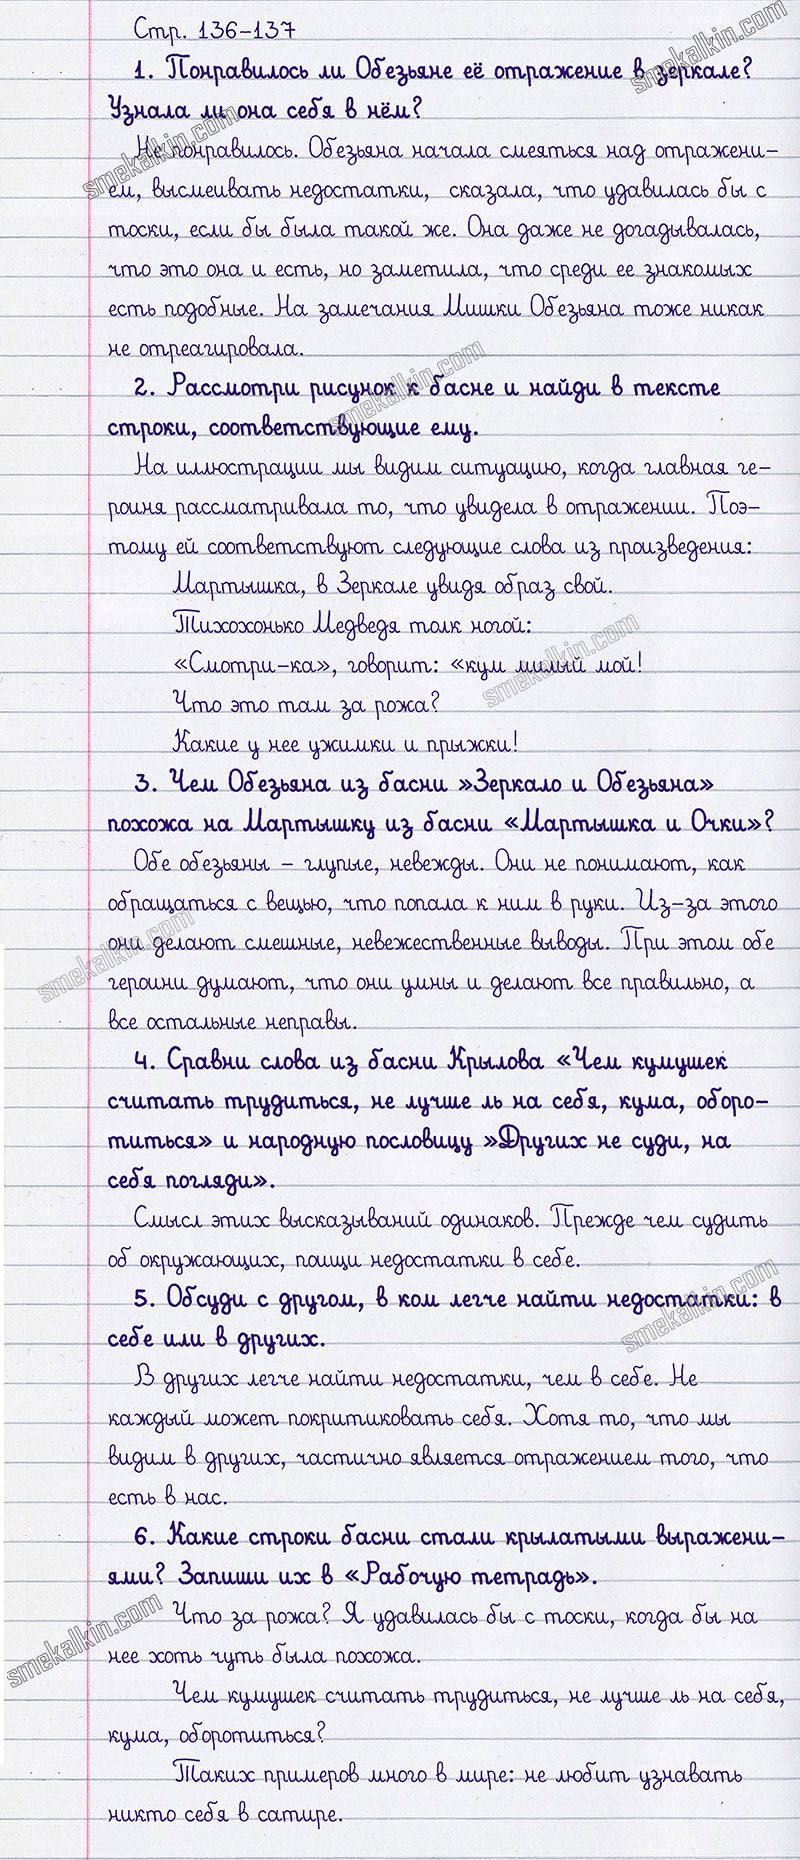 Стр. 136-137
smekalkin.com
1. Понравилось ли Обезьяне её отражение в зеркале?
Узнала ли она себя в нём?
smekalkin.com
Не понравилось. Обезьяна начала смеяться над отражени-
ем, высмеивать недостатки, сказала, что удавилась бы с
тоски, если бы была такой же. Она даже не догадывалась,
что это она и есть, но заметила, что среди ее знакомых
есть подобные. На замечания Мишки Обезьяна тоже никак
не отреагировала.
smekalkin.com
2. Рассмотри рисунок к басне и найди в тексте
строки, соответствующие ему.
На иллюстрации мы видим ситуацию, когда главная ге-
роиня рассматривала то, что увидела в отражении. Поэ-
тому ей соответствуют следующие слова из произведения:
Мартышка, в Зеркале увидя образ свой.
Тихохонько Медведя толк ногой:
smekalkin.com
«Смотри-ка», говорит: «кум милый мой!
Что это там за рожа?
Какие у нее ужимки и прыжки!
3. Чем Обезьяна из басни »Зеркало и Обезьяна»
похожа на Мартышку из басни «Мартышка и Очки»?
Обе обезьяны - глупые, невежды. Они не понимают, как
обращаться с вещью, что попала к ним в руки. Из-за этого
smekalkin.com
они делают смешные, невежественные выводы. При этом обе
героини думают, что они умны и делают все правильно, а
все остальные неправы.
4. Сравни слова из басни Крылова «Чем кумушек
считать трудиться, не лучше ль на себя, кума, оборо-
титься» и народную пословицу »Других не суди, на
себя погляди».
Смысл этих высказываний одинаков. Прежде чем судить
об окружающих, поищи недостатки в себе.
smekalkin.com
5. Обсуди с другом, в ком легче найти недостатки: в
себе или в других.
В других легче найти недостатки, чем в себе. Не
каждый может покритиковать себя. Хотя то, что мы
видим в других, частично является отражением того, что
есть в нас.
6. Какие строки басни стали крылатыми выражени-
ями? Запиши их в «Рабочую тетрадь».
smekalkin.com
Что за рожа? Я удавилась бы с тоски, когда бы на
нее хоть чуть была похожа.
Чем кумушек считать трудиться, не лучше ль на себя,
кума, оборотиться?
Таких примеров много в мире: не любит узнавать
никто себя в сатире.